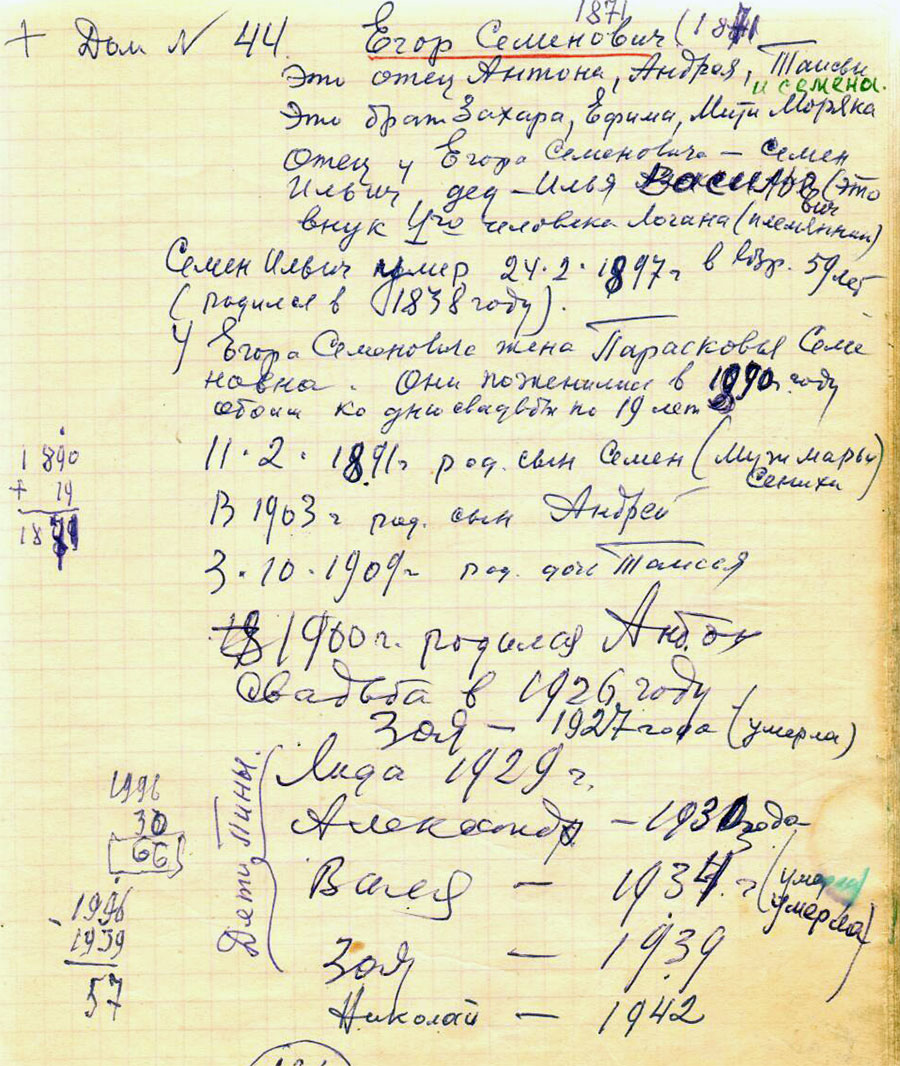 1871
+ Дом N 44. Егор Семенович (1871
Это отец Антона, Андрея, Таисьи
и семена.
Это брат Захара, Ефима, Мити Моряка
Отец у Егора Семеновича – Семен
Ильич дед – Илья Василье (это
вич
внук 1го человека Логана (племянник)
Семен Ильич умер 24.2.1897г в возр. 59 лет
(родился в 1838 году).
У Егора Семеновича жена Парасковья Семе
новна. Они поженились в 1890г. году
обоим ко дню свадьбы по 19 лет
11.2.1891г род. сын Семен (Муж марьи
Сенихи)
В 1903г род. сын Андрей
3.10.1909г род. доч Таисея
1900г. родился Антон
Свадьба в 1926 году
Зоя – 1927 года (умерла)
Лида 1929 г.
Александр – 193 года
Валя – 1934 г (умерла)
умерла
Зоя – 1939
Николай – 1942
Дети Пины.
1890
+ 19
1871
1996
30
66
- 1996
1939
57